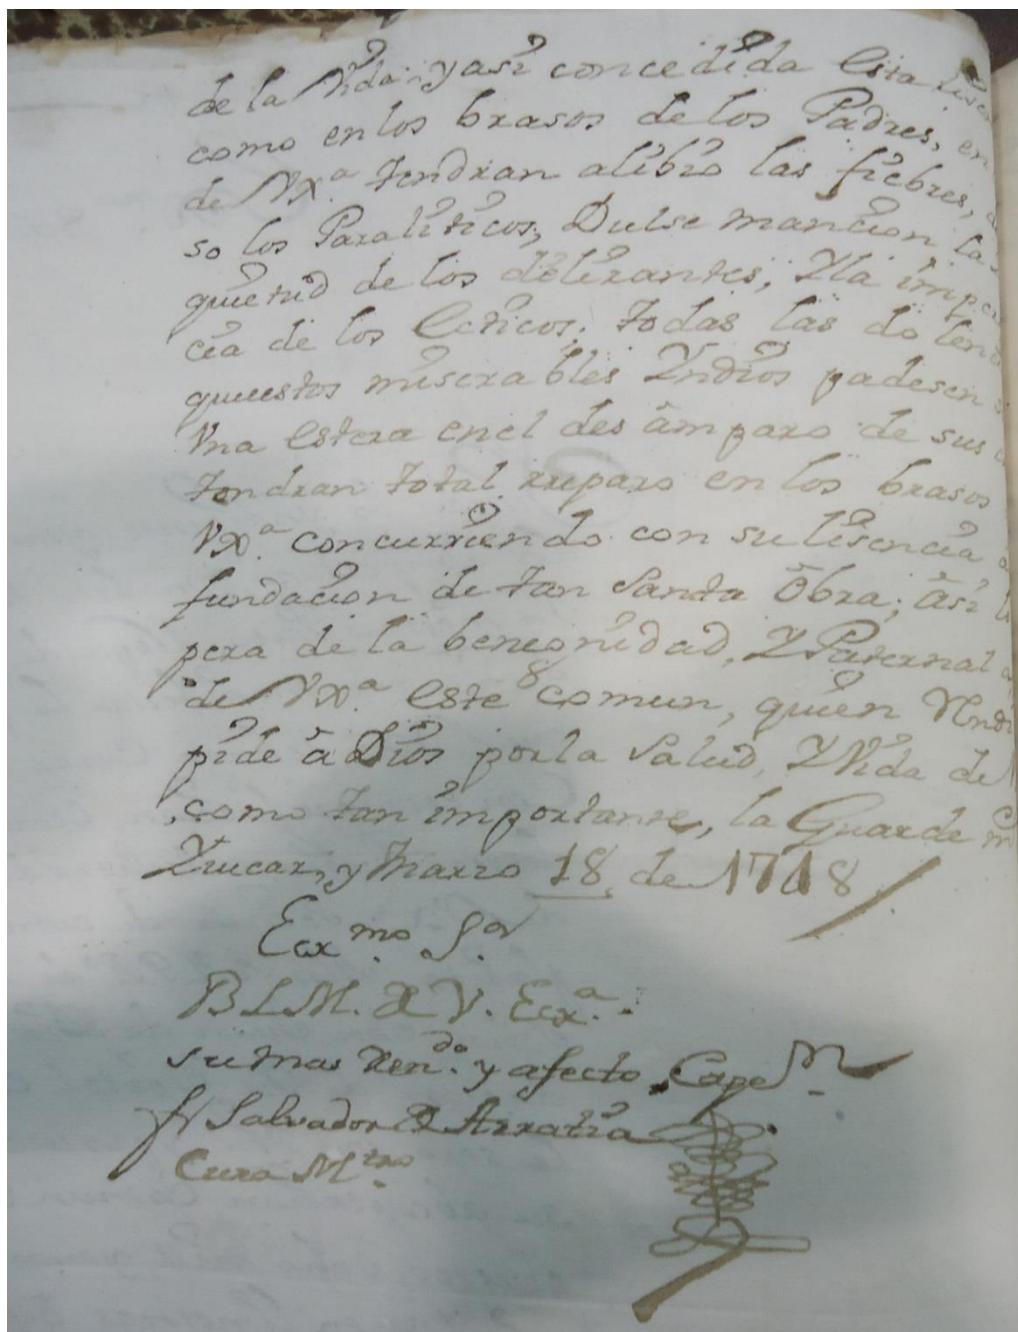 de la Vida: y asi concedida esta
como en los brasos de los Padres, en
de Vxª. tendran alibio las fiebres,
so los Paraliticos, Dulse mancion, la
quietud de los delirantes, Y la
cia de los Eeticos; todas las
quuestos miserables Yndios padesen
Vna estera en el des amparo de sus
tendran total rreparo en los brasos
Vxª. concurriendo con su lisencia
fundacion de tan Santa Obra; asi
pera de la benegnidad, Y Paternal
de Vxª. este comun, quien
pide â Dios por la Salud, Y Vida de
como tan importante, la Guarde
Yzucar, y Marzo 18 de 1718
Eexmo. Sor
B L M. D V. Eexª.
su mas Rendo. y afecto Cape
fr Salvador de Arratia
Cura Mtro.